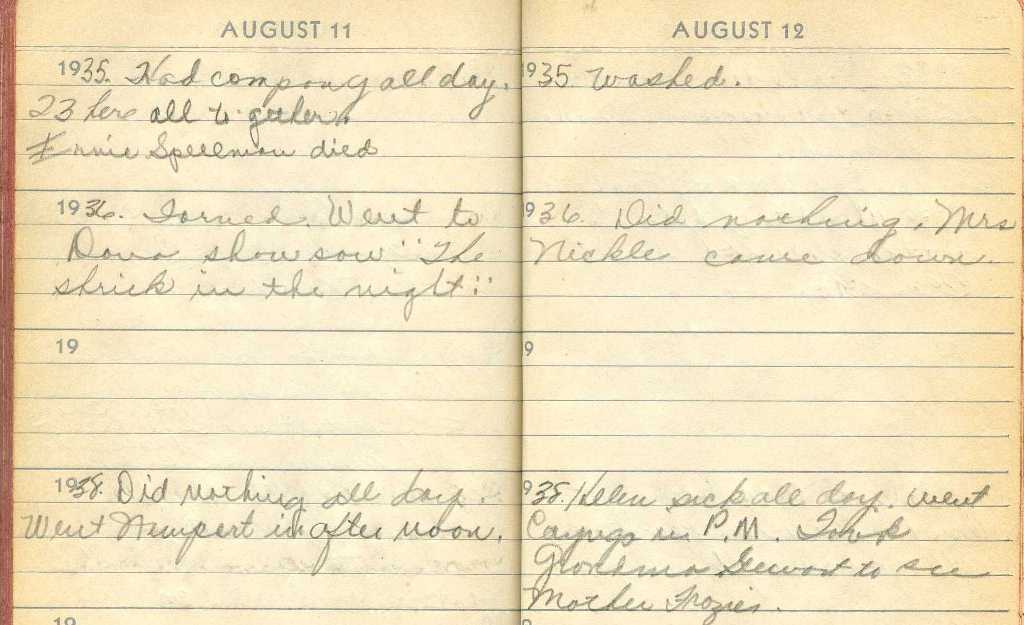 AUGUST 11
1935. Had company all day.
23 here all to gether.
Spellman died
1936. Went to
Dana show saw "The
shriek in the night."
19
1938. Did nothing all day.
Went Newport in after noon.
19
AUGUST 12
1935 Washed.
1936. Did nothing. Mrs
Nickle came down.
19
1938. Helen sick all day. Went
Cayuga in P.M. Took
Grandma Stewart to see
Mother Frazier.